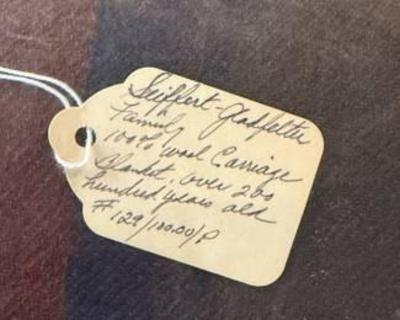 Seiffert-Gladfelter
Family
100% Wool Carriage
Blanket, over 200
hundred years old
# 129/100.00/P